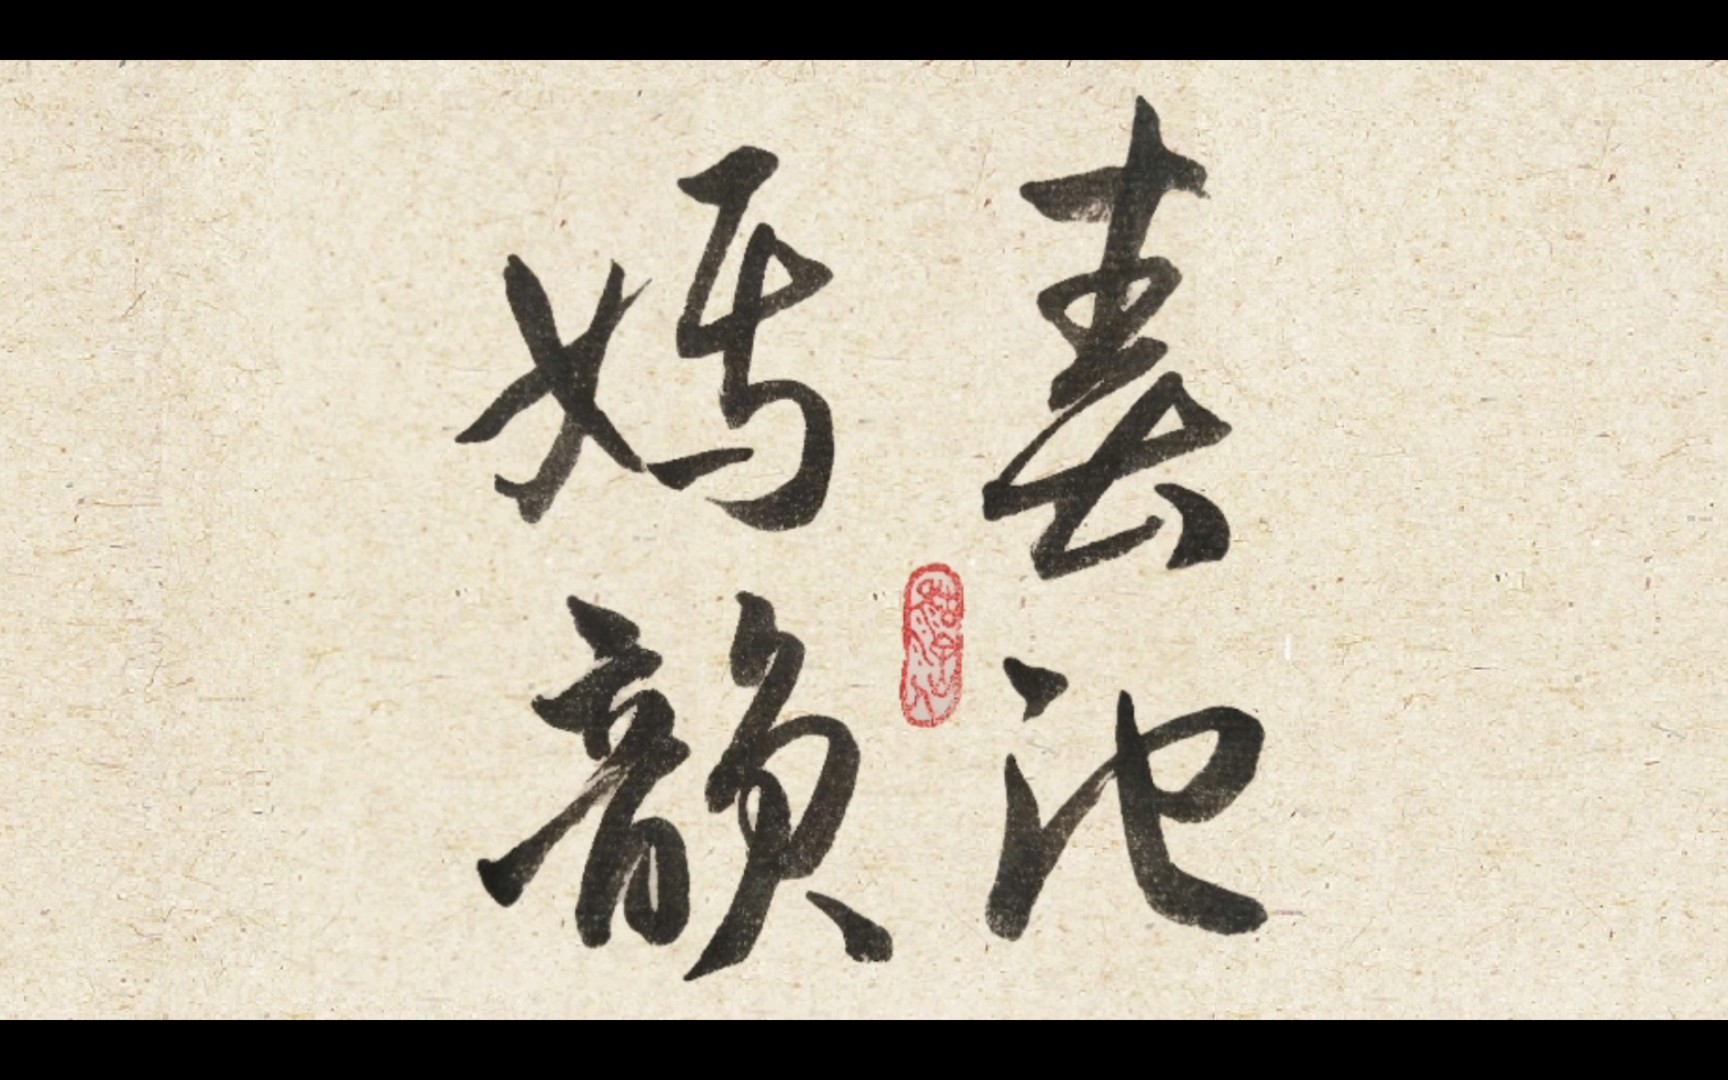 春池
嫣韵